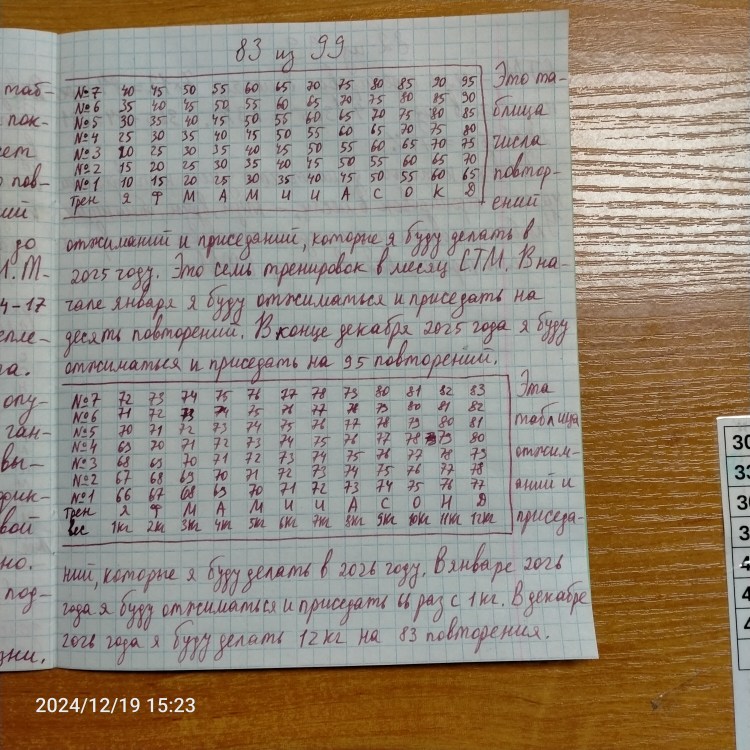 таб-
пок-
пов-
ний
до
4-17
епле-
опу-
ган-
вы-
фик-
вой
но.
под-
зни.
83 из 99
№7 40 45 50 55 60 65 70 75 80 85 90 95
№6 35 40 45 50 55 60 65 70 75 80 85 90
№5 30 35 40 45 50 55 60 65 70 75 80 85
№4 25 30 35 40 45 50 55 60 65 70 75 80
№3 20 25 30 35 40 45 50 55 60 65 70 75
№2 15 20 25 30 35 40 45 50 55 60 65 70
№1 10 15 20 25 30 35 40 45 50 55 60 65
трен Я Ф М А М И И А С О К Д
Это та-
блица
числа
повтор-
ений
отжиманий и приседаний, которые я буду делать в
2025 году. Это семь тренировок в месяц СТМ. В на-
чале января я буду отжиматься и приседать на
десять повторений. В конце декабря 2025 года я буду
отжиматься и приседать на 95 повторений.
№7 72 73 74 75 76 77 78 79 80 81 82 83
№6 71 72 73 74 75 76 77 78 79 80 81 82
№5 70 71 72 73 74 75 76 77 78 79 80 81
№4 69 70 71 72 73 74 75 76 77 78 79 80
№3 68 69 70 71 72 73 74 75 76 77 78 79
№2 67 68 69 70 71 72 73 74 75 76 77 78
№1 66 67 68 69 70 71 72 73 74 75 76 77
трен Я Ф М А М И И А С О Н Д
вес 1кг 2кг 3кг 4кг 5кг 6кг 7кг 8кг 9кг 10кг 11кг 12кг
Эта
таблица
отжим-
аний и
приседа-
ний, которые я буду делать в 2026 году. В январе 2026
года я буду отжиматься и приседать 66 раз с 1 кг. В декабре
2026 года я буду делать 12 кг на 83 повторения.
2024/12/19 15:23